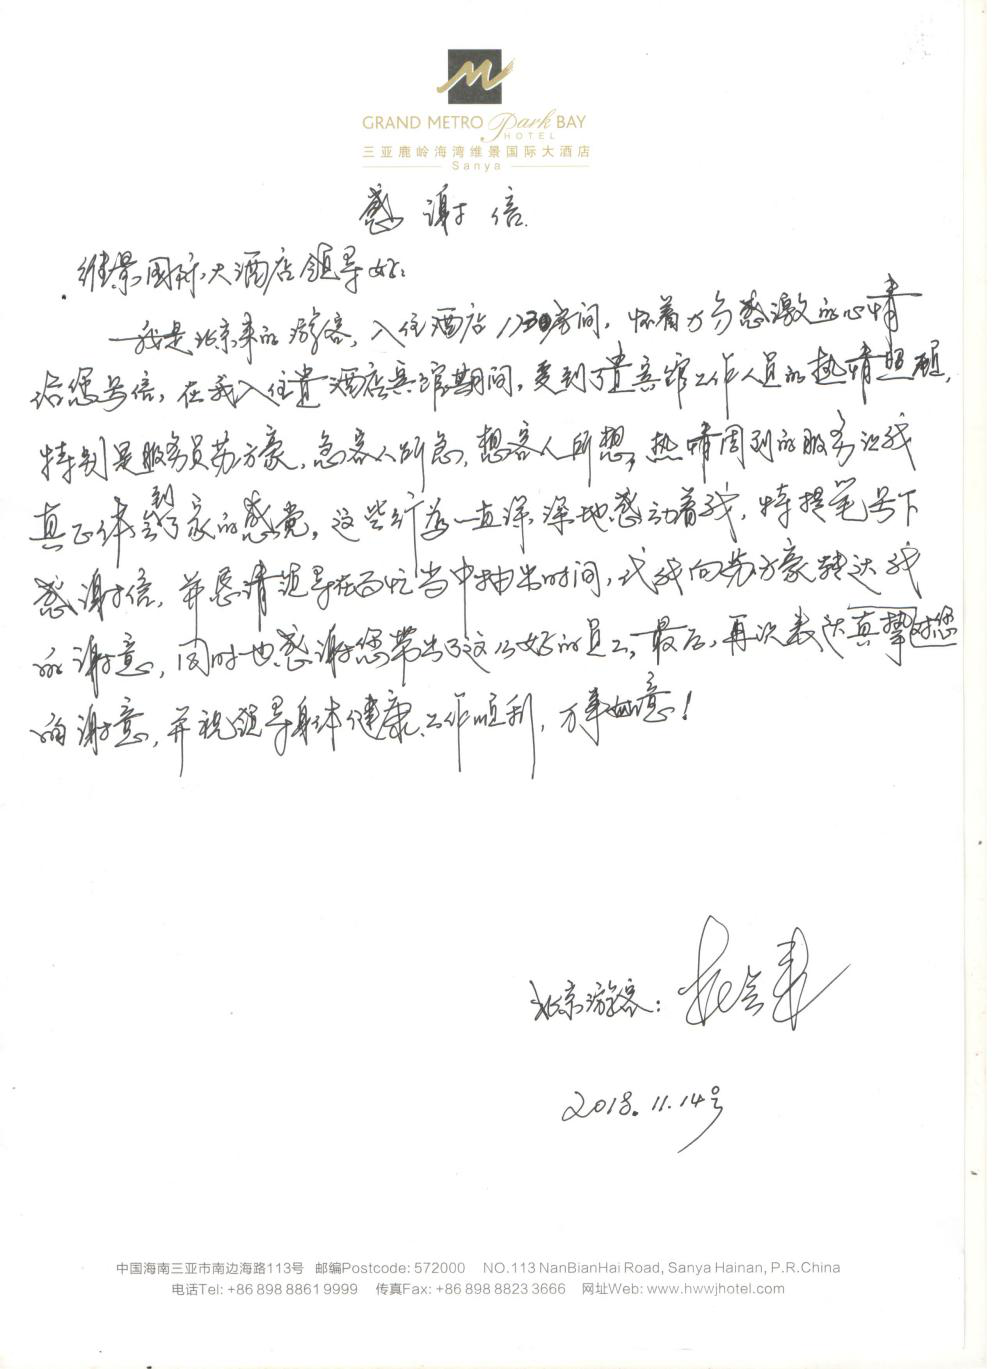 GRAND METRO Park BAY
HOTEL
三亚鹿岭海湾维景国际大酒店
Sanya
感谢信
维景国际大酒店领导好：
我是北京来的游客，入住酒店1730房间，怀着万分感激的心情
给您写信，在我入住贵酒店宾馆期间，受到了贵宾馆工作人员的热情照顾，
特别是服务员苏方豪，急客人所急，想客人所想，热情周到的服务让我
真正体会到了家的感觉，这些行为一直深深地感动着我，特提笔写下
感谢信，并恳请领导在百忙当中抽出时间，代我向苏方豪转达我
的谢意，同时也感谢您带出了这么好的员工，最后，再次表达真挚对您
的谢意，并祝领导身体健康、工作顺利，万事如意！
北京游客：
2018.11.14号
中国海南三亚市南边海路113号 邮编Postcode: 572000 NO.113 NanBianHai Road, Sanya Hainan, P.R.China
电话Tel: +86 898 8861 9999 传真Fax: +86 898 8823 3666 网址Web: www.hwwjhotel.com